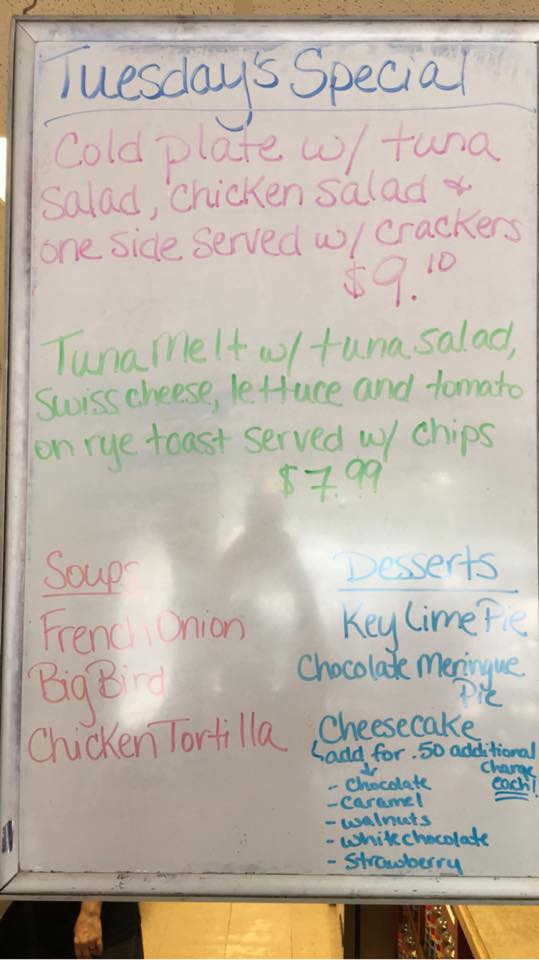 Tuesday's Special
Cold plate w/ tuna
salad, chicken salad &
one side served w/ crackers
$9.10
Tuna Melt w/ tuna salad,
Swiss cheese, lettuce and tomato
on rye toast served w/ chips
$7.99
Soups
French Onion
Big Bird
Chicken Tortilla
Desserts
Key Lime Pie
Chocolate Meringue
Pie
Cheesecake
↳add for .50 additional
charge
each!
- Chocolate
- caramel
- walnuts
- white chocolate
- Strawberry